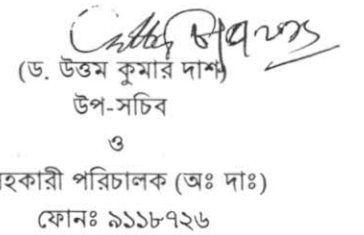 (ড. উত্তম কুমার দাশ)
উপ-সচিব
ও
হকারী পরিচালক (অঃ দাঃ)
ফোনঃ ৯১১৮৭২৬